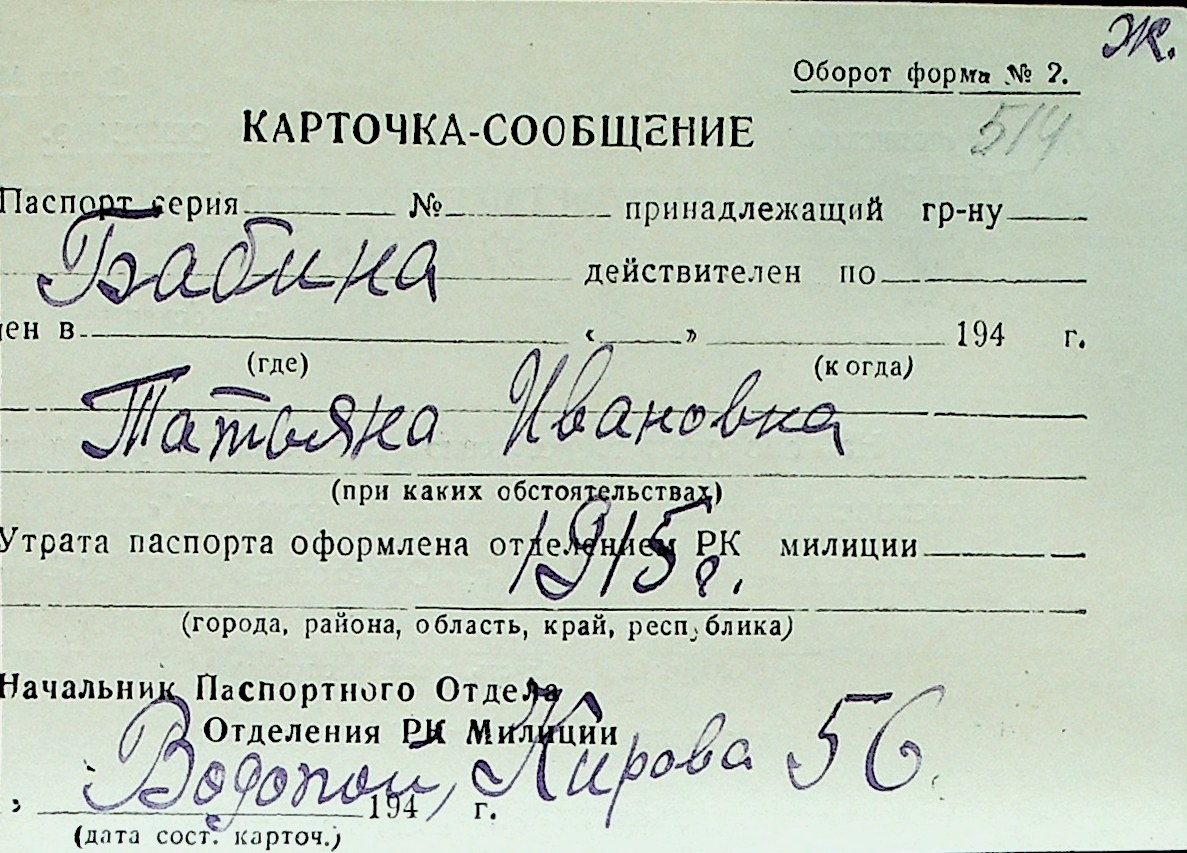 Ж.
Оборот форма № 2.
514
КАРТОЧКА-СООБЩЕНИЕ
Паспорт серия № принадлежащий гр-ну
Бабина
действителен по
ен в « » 194 г.
(где) (когда)
Татьяна Ивановна
(при каких обстоятельствах)
Утрата паспорта оформлена отделением РК милиции
1915 г.
(города, района, область, край, республика)
Начальник Паспортного Отдела
Отделения РК Милиции
Водопой, Кирова 56
194 г.
(дата сост. карточ.)